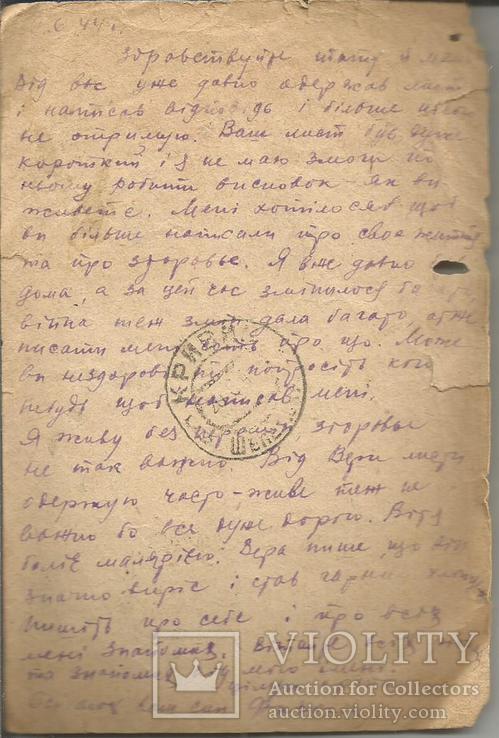 6 44 г.
Здравствуйте тату й мамо
Від вас уже давно одержав листа
і написав відповідь і більше
не отримую. Ваш лист був дуже
короткий і я не маю змоги по
ньому робити висновок як ви
живете. Мені хотілося б щоб
ви більше написали про своє життя
та про здоровье. Я вже давно
дома, а за цей час змінилося багато
війна теж змін дала багато отже
писати мені есть про що. Може
ви нездорові то попросіть кого
небудь щоб написав мені.
Я живу без здоровье
не так важно. Від Вери листи
одержую часто - живе теж не
важно бо все дуже дорого. Вітя
болів малярією. Вера пише, що він
значно виріс і став гарний хлопець
Пишіть про себе і про всех
мені знайомих. Вітаю всех
та знайомих
КРИВИЙ
VIOLITY
Auction for Collectors
auction.violity.com